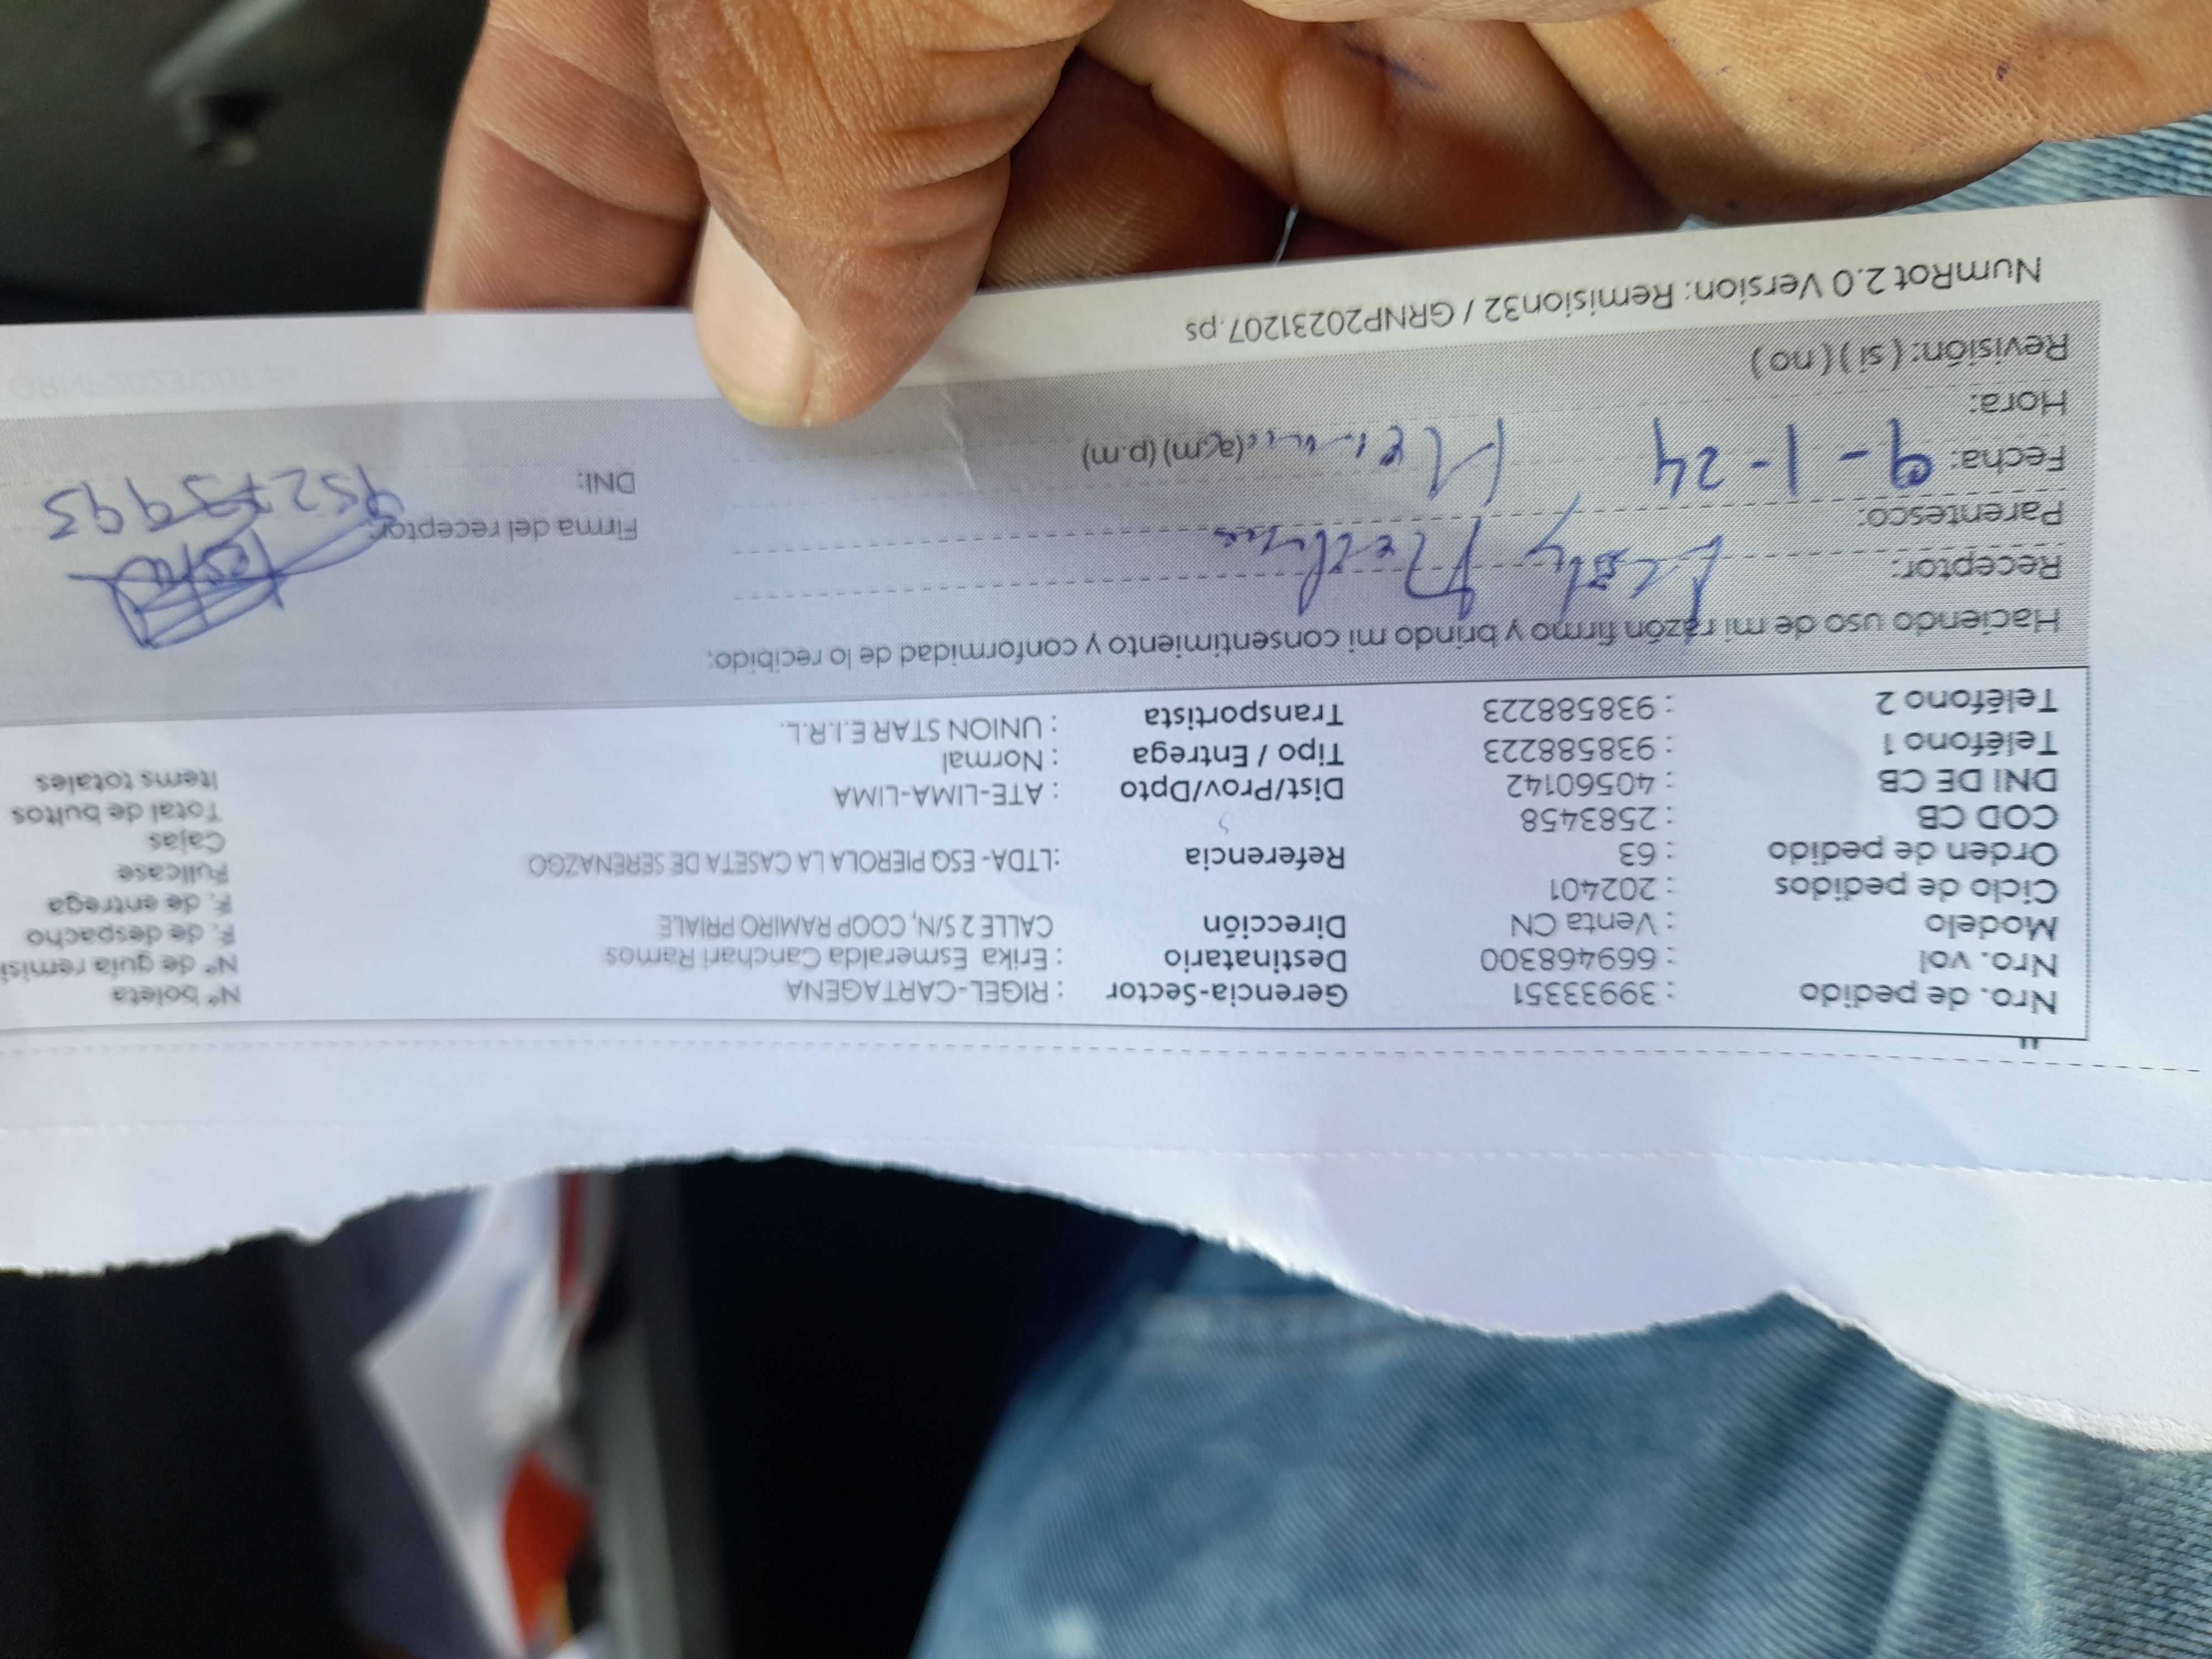 Nro. de pedido : 39933351 Gerencia-Sector : RIGEL-CARTAGENA N° boleta
Nro. vol : 669468300 Destinatario : Erika Esmeralda Canchari Ramos N° de guía remisi
Modelo : Venta CN Dirección CALLE 2 S/N, COOP RAMIRO PRIALE F. de despacho
Ciclo de pedidos : 202401 F. de entrega
Orden de pedido : 63 Referencia :LTDA- ESQ PIEROLA LA CASETA DE SERENAZGO Fullcase
COD CB : 2583458 Cajas
DNI DE CB : 40560142 Dist/Prov/Dpto : ATE-LIMA-LIMA Total de bultos
Teléfono 1 : 938588223 Tipo / Entrega : Normal Items totales
Teléfono 2 : 938588223 Transportista : UNION STAR E.I.R.L.
Haciendo uso de mi razón firmo y brindo mi consentimiento y conformidad de lo recibido:
Receptor:
Parentesco: Firma del receptor:
Fecha: 9-1-24 DNI:
Hora: (a.m) (p.m)
Revisión: ( si ) ( no )
NumRot 2.0 Version: Remision32 / GRNP20231207.ps